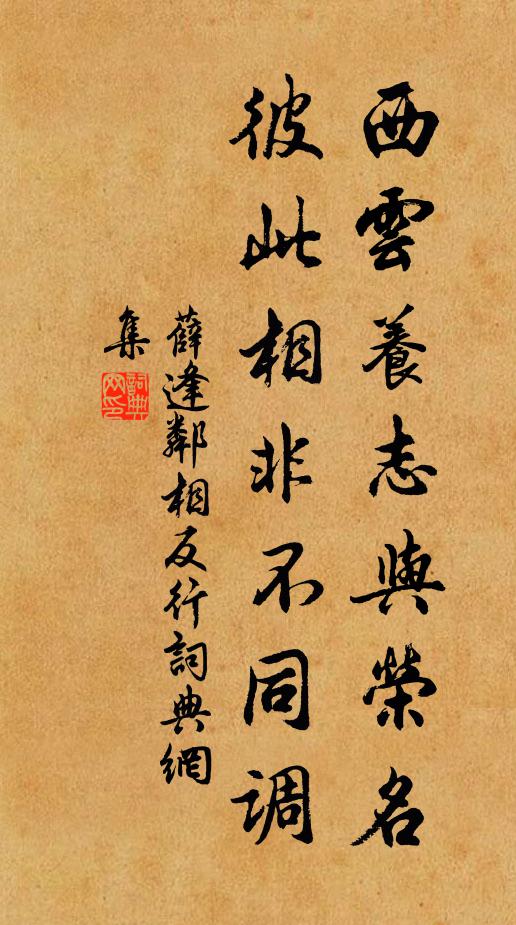 西雲養志與榮名
彼此相非不同調
薛逢鄰相反行詞典網
集
詞典網印